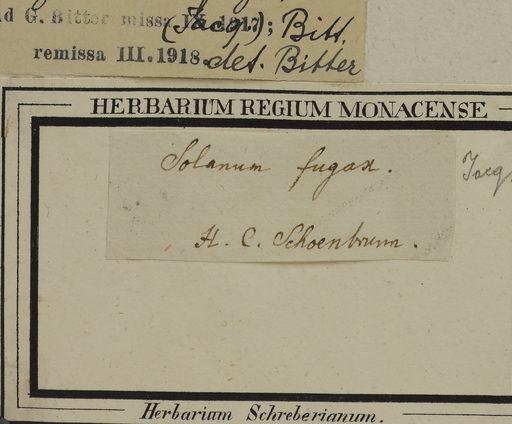 d G. Bitter missa IX. 1917; (Jacq.) Bitt.
remissa III.1918. det. Bitter
HERBARIUM REGIUM MONACENSE
Solanum fugax. Jacq
H. C. Schoenbrunn.
Herbarium Schreberianum.